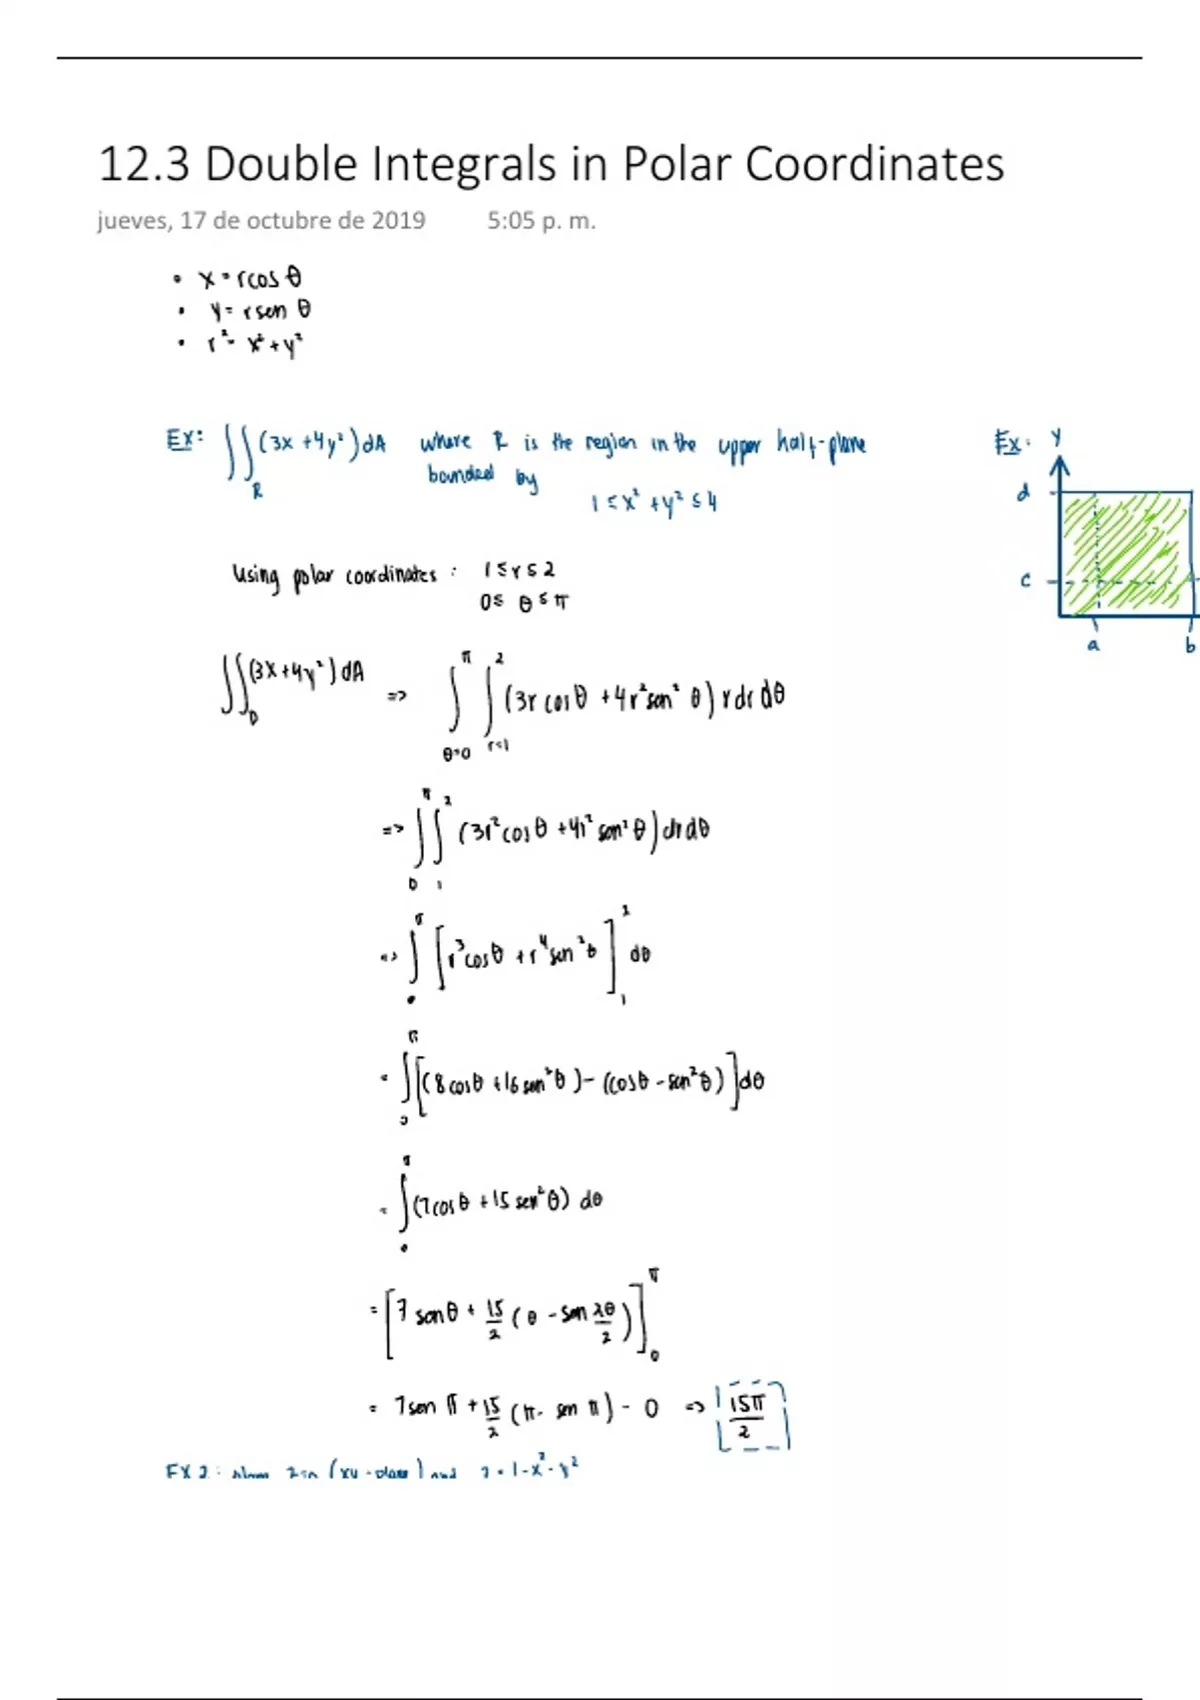 12.3 Double Integrals in Polar Coordinates
jueves, 17 de octubre de 2019 5:05 p. m.
• x = rcos θ
• y = rsen θ
• r² = x² + y²
Ex: ∬_R (3x + 4y²) dA where R is the region in the upper half-plane
bounded by
1 ≤ x² + y² ≤ 4
Ex. y
d
c
a b
Using polar coordinates: 1 ≤ r ≤ 2
0 ≤ θ ≤ π
∬_D (3x + 4y²) dA => ∫_{θ=0}^{π} ∫_{r=1}^{2} (3r cosθ + 4r² sen² θ) r dr dθ
=> ∫_0^π ∫_1^2 (3r² cosθ + 4r² sen² θ) dr dθ
=> ∫_0^π [r³cosθ + r⁴sen²θ]_1^2 dθ
= ∫_0^π [(8cosθ + 16sen²θ) - (cosθ - sen²θ)] dθ
= ∫_0^π (7cosθ + 15sen²θ) dθ
= [7senθ + 15/2 (θ - sen 2θ/2)]_0^π
= 7sen π + 15/2 (π - sen π) - 0 => 15π/2
EX 2: (xy-plane) and z = 1 - x² - y²